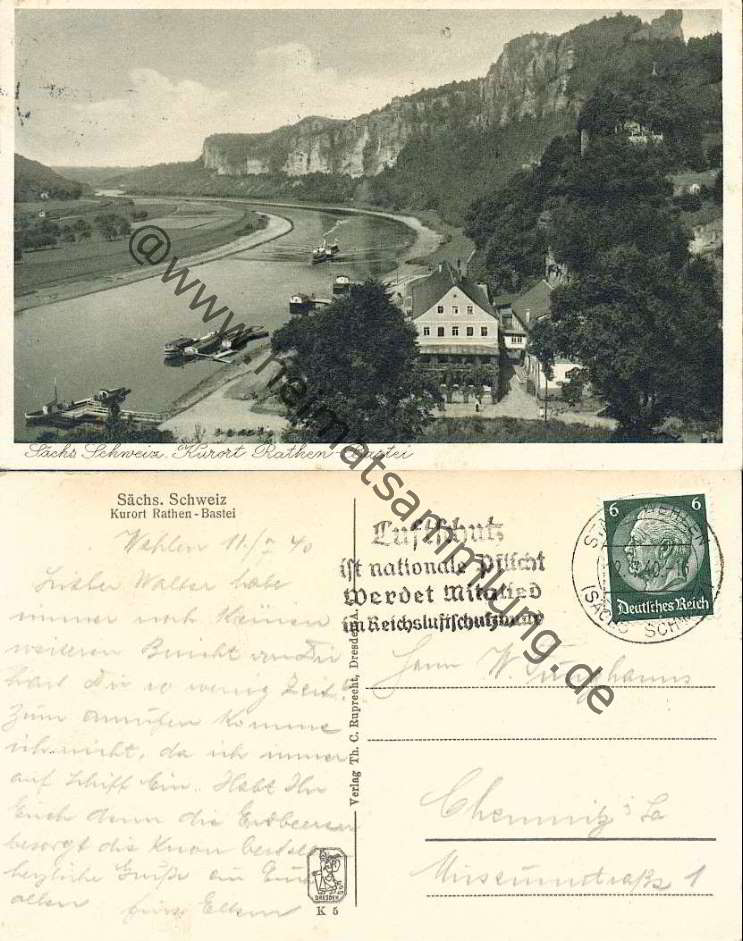 Sächs. Schweiz. Kurort Rathen - Bastei
@www.heimatsammlung.de
Sächs. Schweiz
Kurort Rathen - Bastei
Wehlen 11/V 40
Lieber Walter habe
immer noch keinen
weiteren Bericht von Dir
hast Du so wenig Zeit?
Zum anrufen komme
ich nicht, da ich immer
auf Schiff bin. Habt Ihr
Euch denn die Erdbeeren
besorgt die
herzliche Grüße an Euch
allen Eltern
Verlag Th. C. Ruprecht, Dresden-A.
DRESDEN
K 5
Luftschutz
ist nationale Pflicht
Werdet Mitglied
im Reichsluftschutzbund
6 6
Deutsches Reich
(SÄCHS. SCHWEIZ)
Herrn W. Junghanns
Chemnitz i/Sa
Museumstraße 1